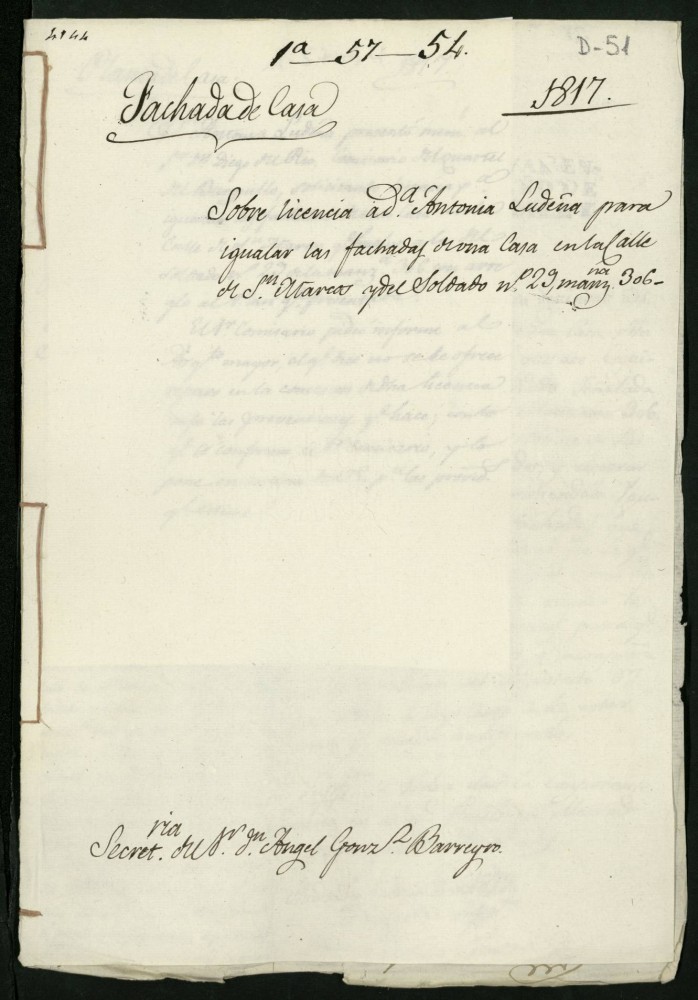 1ª 57-54.
D-51
Fachada de Casa
1817.
Sobre licencia a d.ª Antonia Ludeña para
igualar las fachadas de una Casa en la Calle
de S.n Marcos y del Soldado n.º 29 manz.na 306-
Secret.ria del S.r d.n Angel Gonz.z Barreyro.